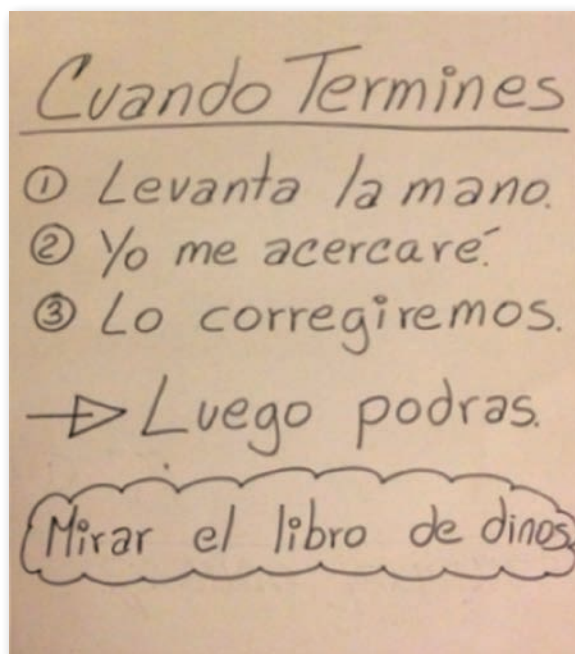 Cuando Termines
① Levanta la mano.
② Yo me acercaré.
③ Lo corregiremos.
Luego podras.
Mirar el libro de dinos.